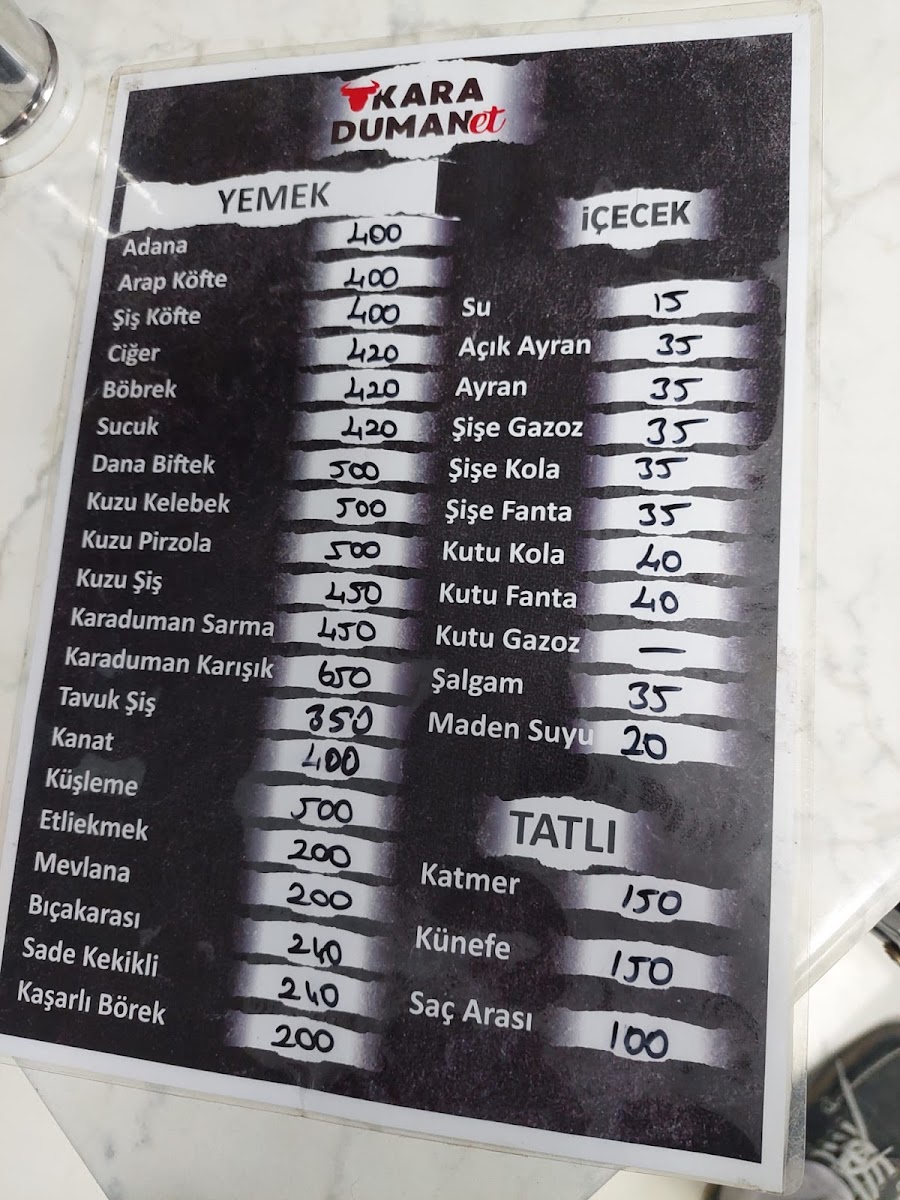 KARA
DUMANet
YEMEK
Adana 400
Arap Köfte 400
Şiş Köfte 400
Ciğer 420
Böbrek 420
Sucuk 420
Dana Biftek 500
Kuzu Kelebek 500
Kuzu Pirzola 500
Kuzu Şiş 450
Karaduman Sarma 450
Karaduman Karışık 650
Tavuk Şiş 350
Kanat 400
Küşleme 500
Etliekmek 200
Mevlana 200
Bıçakarası 240
Sade Kekikli 240
Kaşarlı Börek 200
İÇECEK
Su 15
Açık Ayran 35
Ayran 35
Şişe Gazoz 35
Şişe Kola 35
Şişe Fanta 35
Kutu Kola 40
Kutu Fanta 40
Kutu Gazoz —
Şalgam 35
Maden Suyu 20
TATLI
Katmer 150
Künefe 150
Saç Arası 100